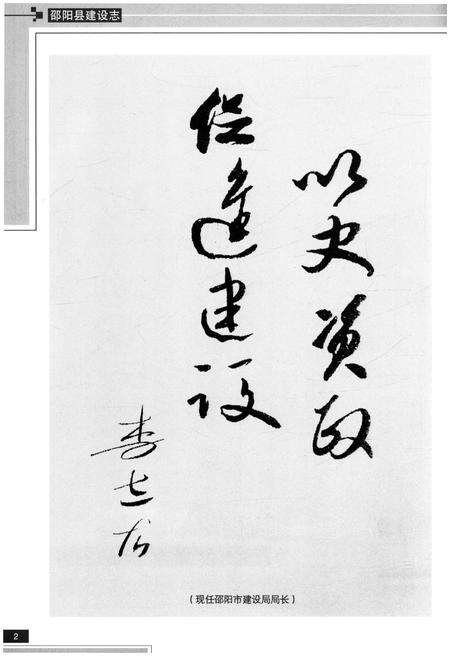 邵阳县建设志
以史资政
促进建设
（现任邵阳市建设局局长）
2